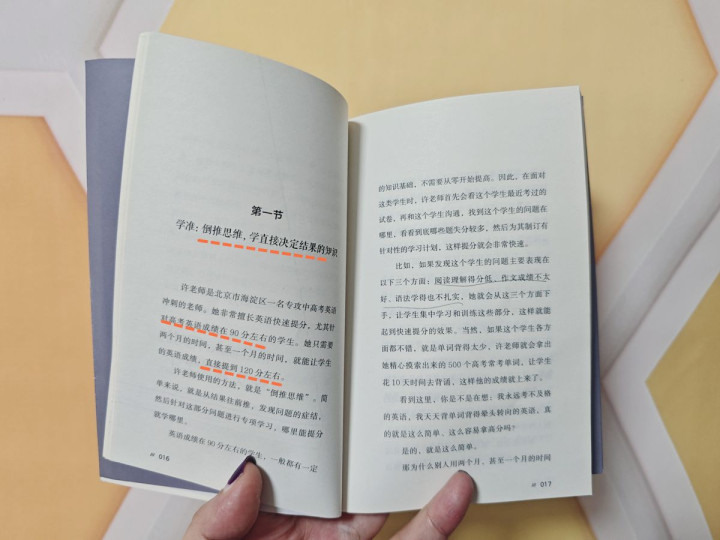 第一节
学准：倒推思维，学直接决定结果的知识
许老师是北京市海淀区一名专攻中高考英语
冲刺的老师。她非常擅长英语快速提分，尤其针
对高考英语成绩在90分左右的学生。她只需要
两个月的时间，甚至一个月的时间，就能让学生
的英语成绩，直接提到120分左右。
许老师使用的方法，就是“倒推思维”。简
单来说，就是从结果往前推，发现问题的症结，
然后针对这部分问题进行专项学习，哪里能提分
就学哪里。
英语成绩在90分左右的学生，一般都有一定
016
的知识基础，不需要从零开始提高。因此，在面对
这类学生时，许老师首先会看这个学生最近考过的
试卷，再和这个学生沟通，找到这个学生的问题在
哪里，看看到底哪些题失分较多，然后为其制订有
针对性的学习计划，这样提分就会非常快速。
比如，如果发现这个学生的问题主要表现在
以下三个方面：阅读理解得分低、作文成绩不太
好、语法学得也不扎实，她就会从这三个方面下
手，让学生集中学习和训练这些部分，这样就能
起到快速提分的效果。当然，如果这个学生各方
面都不错，就是单词背得太少。许老师就会拿出
她精心摸索出来的500个高考常考单词，让学生
花10天时间去背诵，这样他的成绩就上来了。
看到这里，你是不是在想：我永远考不及格
的英语，我天天背单词背得晕头转向的英语，真
的就是这么简单、这么容易拿高分吗？
是的，就是这么简单。
那为什么别人用两个月，甚至一个月的时间
017